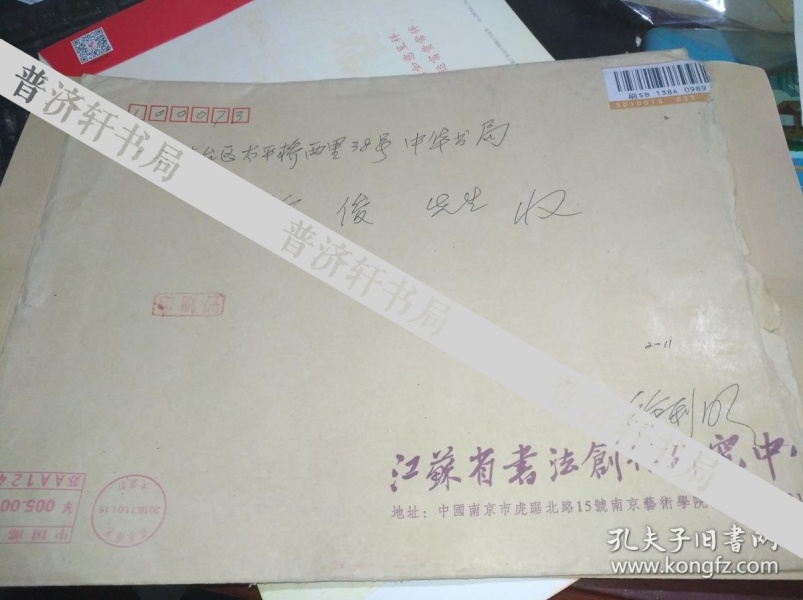 普济轩书局
刷SB 1384 0989
100073
台区太平桥西里38号 中华书局
俊 先生 收
普济轩书局
印刷品
2-11
徐利明
江蘇省書法創
究中
地址：中國南京市虎踞北路15號南京藝術學院
苏AA124
￥ 005.00
中国邮
2018.11.01.15
普济轩书局
孔夫子旧书网
www.kongfz.com